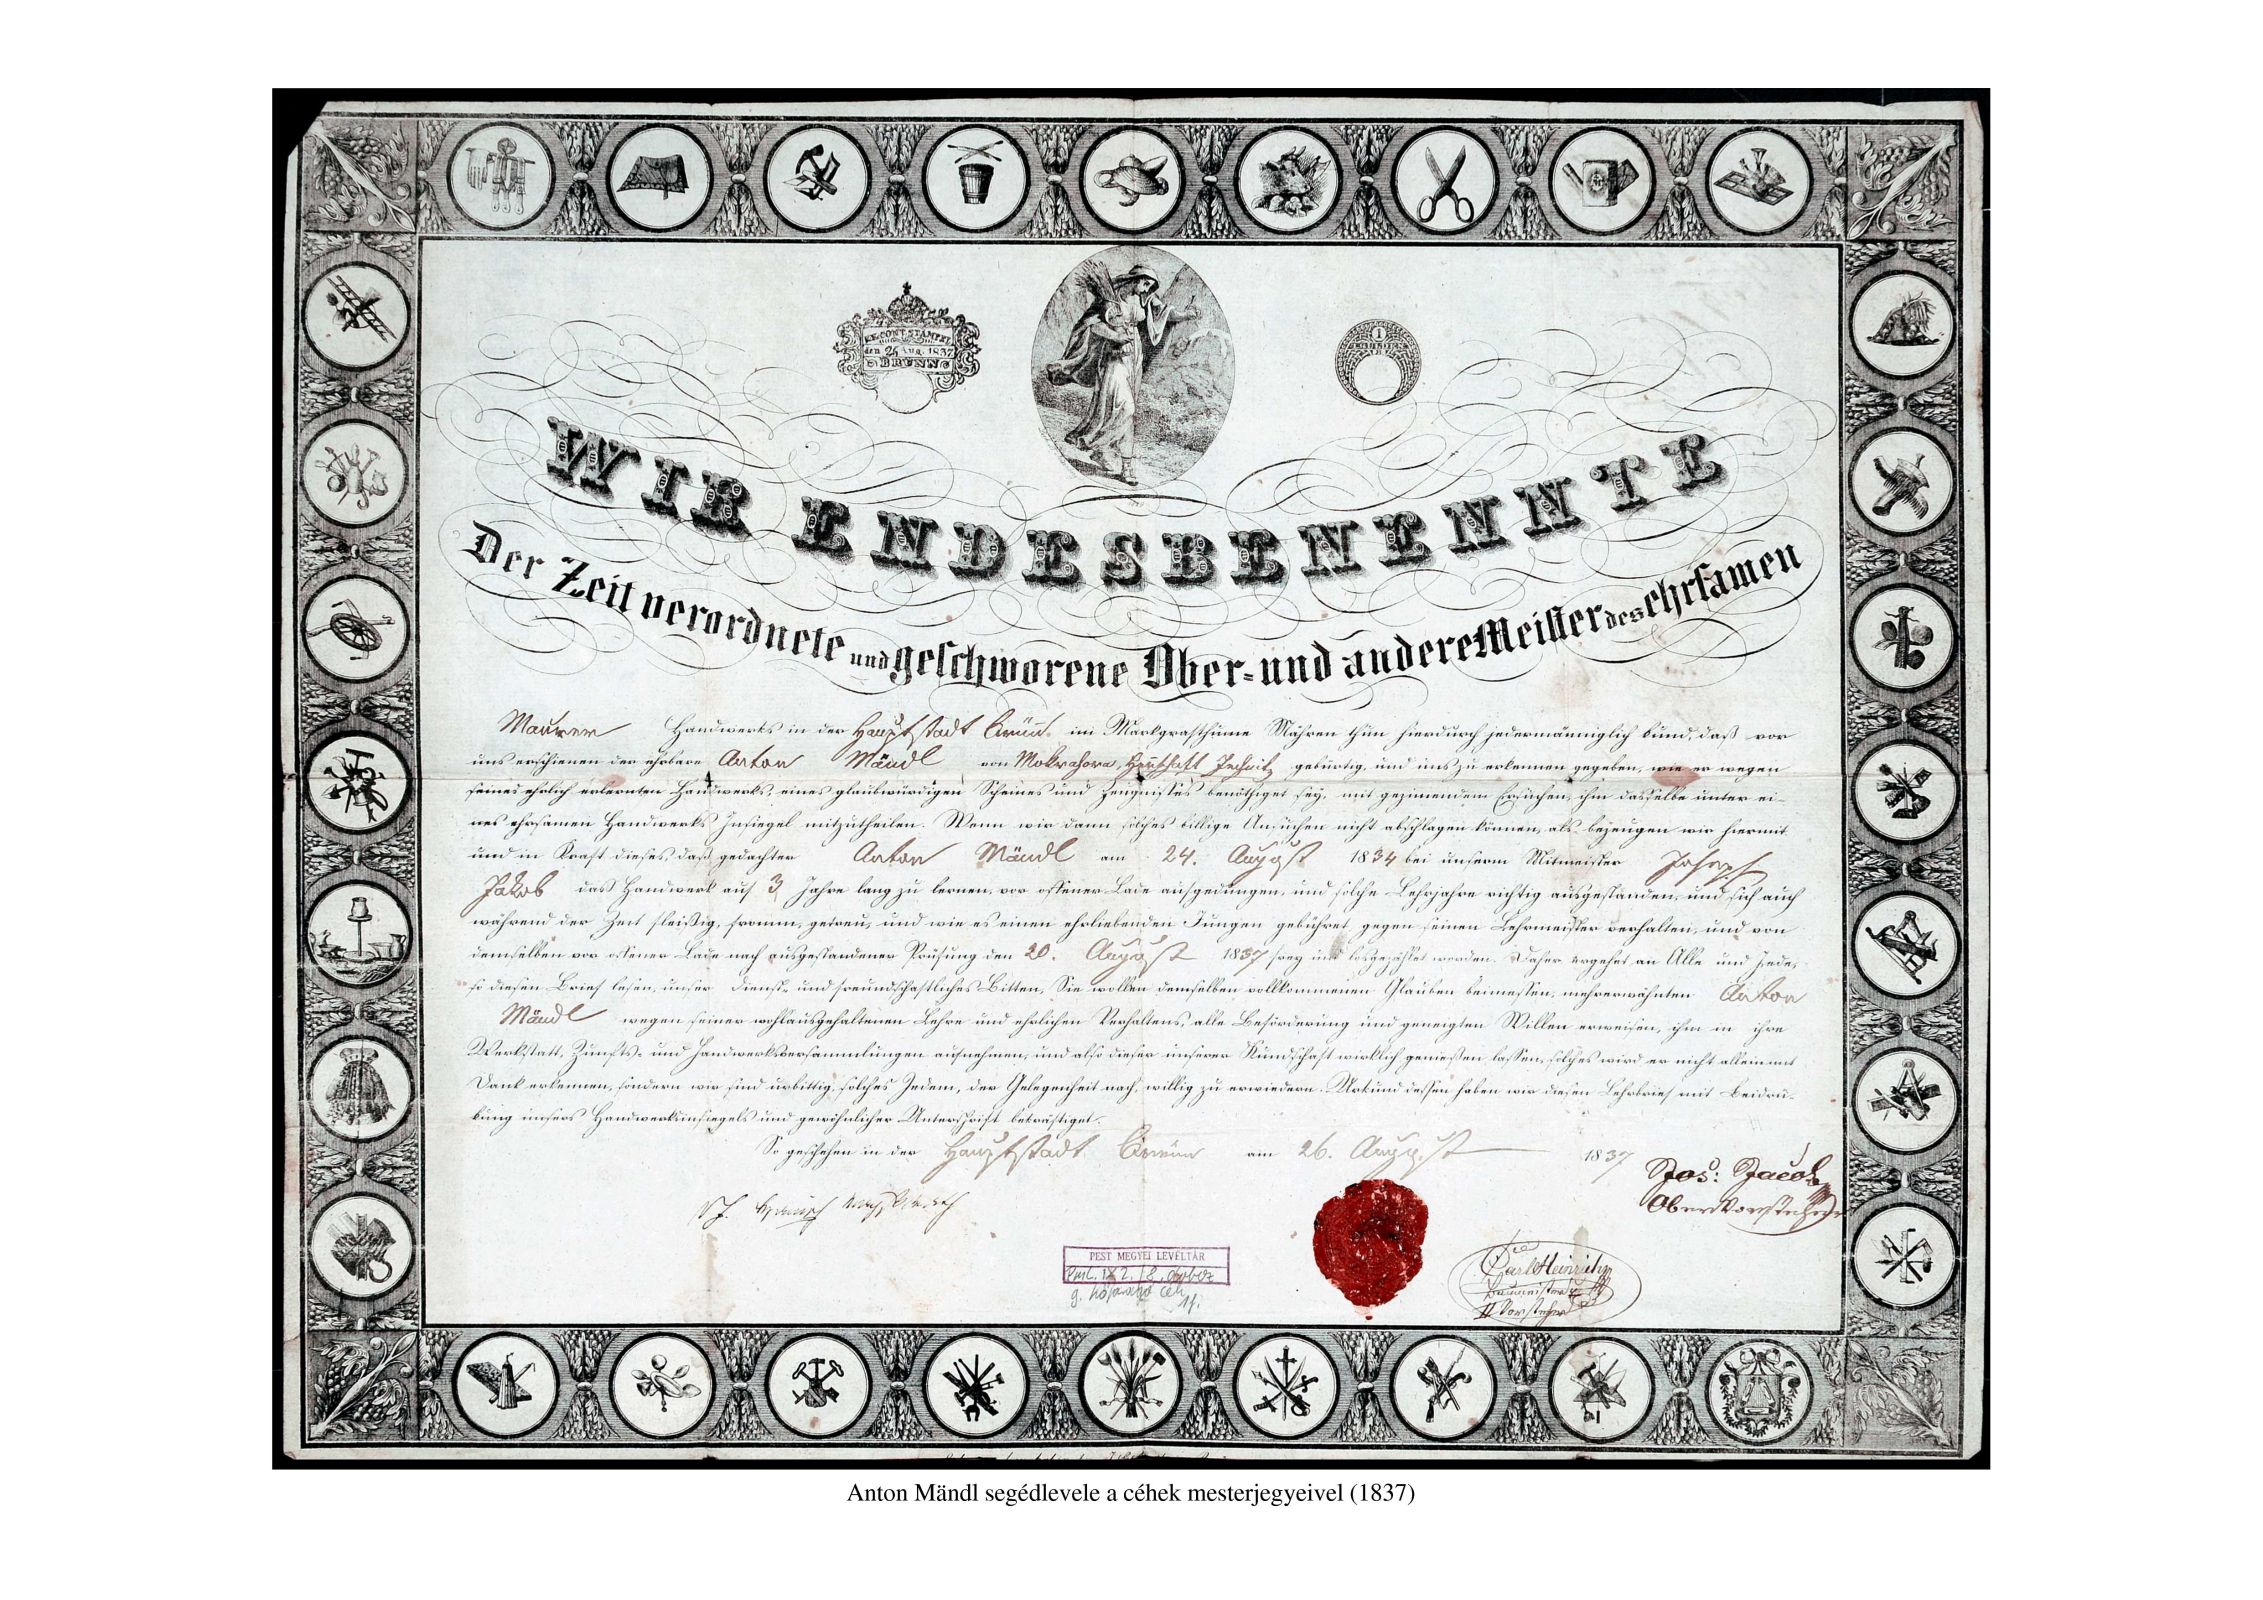 K.K. CONT. STAMPEL
den 26 Aug. 1837
BRÜNN
1
GULDEN
WIR ENDESBENENNTE
Der Zeit verordnete und geschworene Ober- und andere Meister des ehrsamen
Maurer Handwerks in der Hauptstadt Brünn im Markgrafthume Mähren thun hierdurch jedermänniglich kund, daß vor
uns erschienen der ehrbare Anton Mändl von Mokrahora, Herrschaft gebürtig, und uns zu erkennen gegeben, wie er wegen
seines ehrlich erlernten Handwerks, eines glaubwürdigen Scheines und Zeugnisses benöthiget sey, mit geziemendem Ersuchen, ihm dasselbe unter ei-
nes ehrsamen Handwerks Insiegel mitzutheilen. Wenn wir dann solches billige Ansuchen nicht abschlagen können, als bezeugen wir hiermit
und in Kraft dieses, daß gedachter Anton Mändl am 24. August 1834 bei unserm Mitmeister Joseph
Jakob das Handwerk auf 3 Jahre lang zu lernen, vor offener Lade aufgedungen, und solche Lehrjahre richtig ausgestanden, und sich auch
während der Zeit fleißig, fromm, getreu, und wie es einen ehrliebenden Jungen gebühret, gegen seinen Lehrmeister verhalten, und von
demselben vor offener Lade nach ausgestandener Prüfung den 20. August 1837 frey und losgezählet worden. Daher ergehet an Alle und Jede,
so diesen Brief lesen, unser Dienst- und freundschaftliches Bitten, Sie wollen demselben vollkommenen Glauben beimessen, mehrerwähnten Anton
Mändl wegen seiner wohlausgehaltenen Lehre und ehrlichen Verhaltens, alle Beförderung und geneigten Willen erweisen, ihm in ihre
Werkstatt, Zunfts- und Handwerksversammlungen aufnehmen, und also dieser unserer Kundschaft wirklich genießen lassen, solches wird er nicht allein mit
Dank erkennen, sondern wir sind urbittig, solches Jedem, der Gelegenheit nach, willig zu erwiedern. Urkund dessen haben wir diesen Lehrbrief mit Beidru-
kung unsers Handwerksinsiegels und gewöhnlicher Unterschrift bekräftiget.
So geschehen in der Hauptstadt Brünn am 26. August 1837
Jos: Jacob
Obervorsteher
Carl Heinrich
Baumeister
II Vorsteher
PEST MEGYEI LEVÉLTÁR
PmL. IX 2. /8. doboz
Anton Mändl segédlevele a céhek mesterjegyeivel (1837)